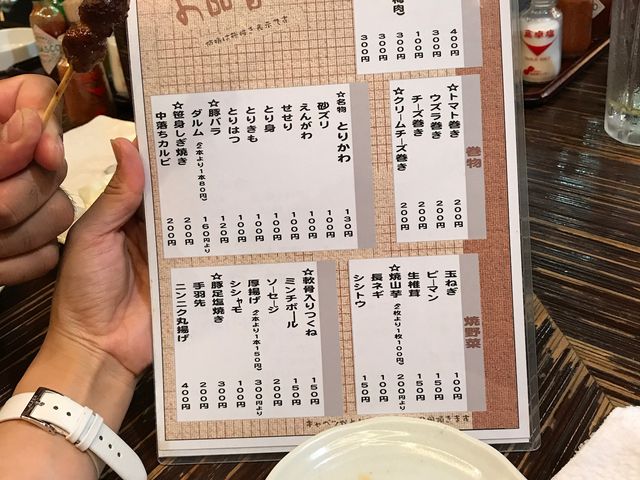 お品書
梅肉)
400円
300円
300円
100円
300円
300円
300円
巻物
☆トマト巻き 200円
ウズラ巻き 200円
チーズ巻き 200円
☆クリームチーズ巻き 200円
☆名物 とりかわ 130円
砂ズリ 100円
えんがわ 100円
せせり 100円
とり身 100円
とりきも 100円
とりはつ 100円
☆豚バラ 120円
ダルム(2本より1本80円) 160円より
☆笹身しぎ焼き 200円
中落ちカルビ 200円
焼野菜
玉ねぎ 100円
ピーマン 150円
生椎茸 150円
☆焼山芋(2枚より1枚100円) 200円より
長ネギ 100円
シシトウ 150円
☆軟骨入りつくね 150円
ミンチボール 150円
ソーセージ 200円
厚揚げ(2本より1本150円) 300円より
シシャモ 100円
☆豚足塩焼き 300円
手羽先 200円
ニンニク丸揚げ 400円
食卓塩